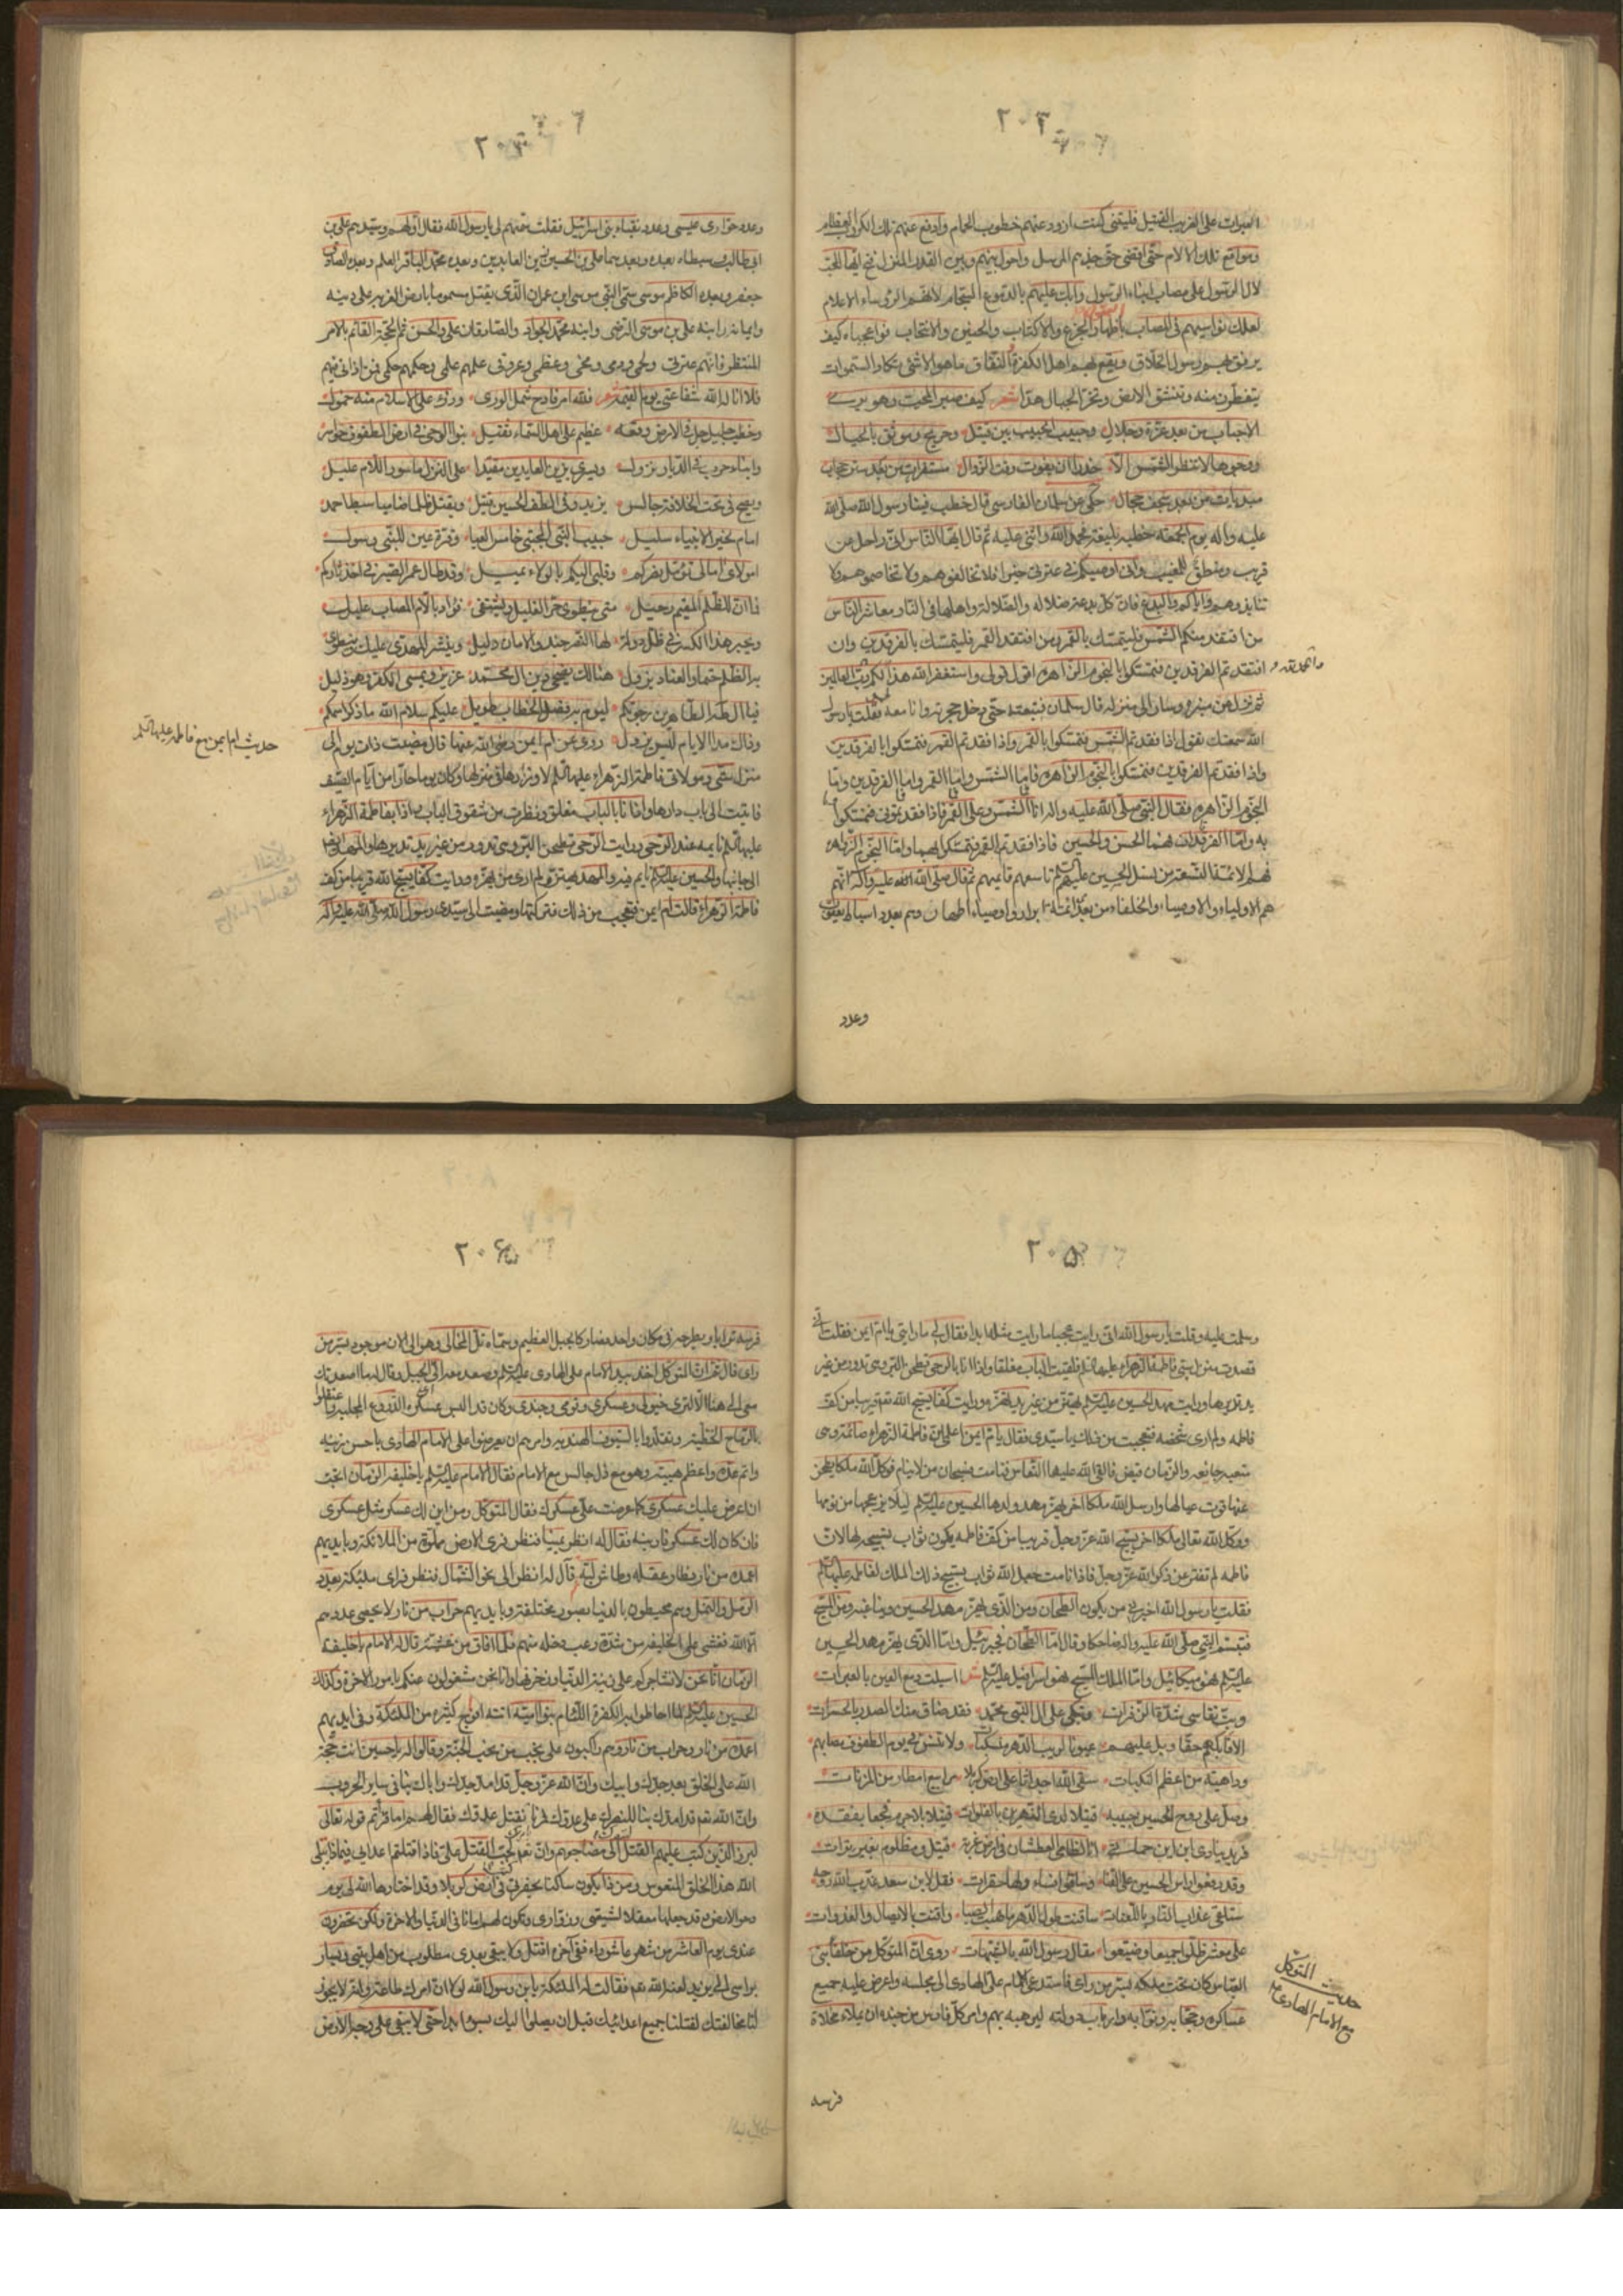 ٢٠٣
العبرات على الغريب القتيل فليتني كنت ازود عنهم خطوب الحمام وادفع عنهم تلك الكروب العظام
ومواقع تلك الالام حتى اقضي حق جدهم المرسل واحول بينهم وبين القدر المنزل فيا ايها المحب
لال الرسول على مصاب ابناء الرسول وابك عليهم بالدموع السجام لانهم الرؤساء الاعلام
لعلك تواسيهم في المصاب باظهار الجزع والاكتاب والحنين والانتحاب فواعجباه كيف
رسول الخلاق ويقع بهم اهل الكفر والنفاق ما هو الاشئ تكاد السموات
يتفطرن منه وتنشق الارض وتخر الجبال هذا شعر كيف صبر المحب وهو يرى
الاحباب من بعد عزة وجلال وحبيب الحبيب بين قتيل وجريح وموثق بالحبال
الشمس حذرا ان يفوت وقت الزوال من بعد ستر حجاب
من بعد سجف حجال حكي عن سلمان الفارسي قال خطب فينا رسول الله صلى الله
عليه واله يوم الجمعة خطبة بليغة فحمد الله واثنى عليه ثم قال ايها الناس اني راحل عن
قريب ومنطلق للمغيب واني اوصيكم في عترتي خيرا فلا تخالفوهم ولا تخاصموهم ولا
تنابذوهم واياكم والبدع فان كل بدعة ضلالة والضلالة واهلها في النار معاشر الناس
من افتقد منكم الشمس فليتمسك بالقمر ومن افتقد القمر فليتمسك بالفرقدين وان
افتقدتم الفرقدين فتمسكوا بالنجوم الزاهرة اقول قولي واستغفر الله هذا لكم رب العالمين
ثم نزل عن منبره وسار الى منزله قال سلمان فتبعته حتى دخل حجرته وانا معه فقلت يا رسول
الله سمعتك تقول اذا فقدتم الشمس فتمسكوا بالقمر واذا فقدتم القمر فتمسكوا بالفرقدين
واذا فقدتم الفرقدين فتمسكوا بالنجوم الزاهرة فما الشمس وما القمر وما الفرقدين وما
النجوم الزاهرة فقال النبي صلى الله عليه واله انا الشمس وعلي القمر فاذا فقدتموني فتمسكوا
به واما الفرقدان فهما الحسن والحسين فاذا فقدتم القمر فتمسكوا بهما واما النجوم الزاهرة
فهم الائمة التسعة من نسل الحسين عليهم السلم تاسعهم قائمهم ثم قال صلى الله عليه واله انهم
هم الاولياء والاوصياء والخلفاء من بعدي ائمة ابرار واوصياء اطهار وهم بعدد اسباط يعقوب
وعدد
وعدد حواري عيسى وعدد نقباء بني اسرائيل فقلت سمهم لي يا رسول الله فقال اولهم وسيدهم علي بن
ابي طالب وسبطاه بعده وبعدهما علي بن الحسين زين العابدين وبعده محمد الباقر العلم وبعده الصادق
جعفر وبعده الكاظم موسى سمي النبي موسى ابن عمران الذي يقتل مسموما بارض الغربة على دينه
وايمانه ابنه علي بن موسى الرضي وابنه محمد الجواد والصادقان علي والحسن ثم الحجة القائم بالامر
المنتظر فانهم عترتي ولحمي ودمي ومخي وعظمي وعروقي علمهم علمي وحكمهم حكمي فمن اذاني فيهم
فلا اناله الله شفاعتي يوم القيمة شعر فلله امر فادح شمل الورى ورزء على الاسلام منه خمول
وخطب جليل جل في الارض وقعه عظيم على اهل السماء ثقيل بنوا الوحي في ارض الطفوف حواسر
وابناء حرب في الديار نزول ويسرى بزين العابدين مقيدا على البزل ماسورا للام عليل
ويصبح في تخت الخلافة جالس يزيد وفي الطف الحسين قتيل ويقتل ظلما ظاميا سبط احمد
امام لخير الانبياء سليل حبيب النبي المجتبى خامس العبا وقرة عين للنبي رسول
امولاي امالي تؤمل نصركم وقلبي اليكم بالولاء يميل وقد طال عمر الصبر في اخذ ثاركم
فاان للظلم المقيم رحيل متى ينطوي حر الغليل ويشتفي فؤاد بالام المصاب عليل
ويجبر هذا الكسر في ظل دولة لها النصر جند والامان دليل وينشر للمهدي عدل
به الظلم حتما والعناد يزول هنالك يضحي دين ال محمد عزيز ويمسي الكفر وهو ذليل
فيا ال طه الطاهرين رجوتكم ليوم به فصل الخطاب طويل عليكم سلام الله ما ذكر اسمكم
وذاك مدا الايام ليس يزول روي عن ام ايمن رضي الله عنها قال مضيت ذات يوم الى
منزل ستي ومولاتي فاطمة الزهراء عليها السلم لازورها في منزلها وكان يوما حارا من ايام الصيف
فاتيت الى باب دارها واذا انا بالباب مغلق ونظرت من شقوق الباب واذا بفاطمة الزهراء
عليها السلم نايمة عند الرحى ورايت الرحى تطحن البر وهي تدور من غير يد تديرها والمهد ايضا
الى جانبها والحسين عليه السلم نايم فيه والمهد يهتز ولم ارى من يهزه ورايت كفا يسبح لله قريبا من كف
فاطمة الزهراء قالت ام ايمن فتعجبت من ذلك فتركتها ومضيت الى سيدي رسول الله صلى الله عليه واله
حديث ام ايمن مع فاطمه عليها السلم
٢٠٥
وسلمت عليه وقلت يا رسول الله اني رايت عجبا ما رايت مثله ابدا فقال لي ما رايتي يا ام ايمن فقلت اني
قصدت منزل ستي فاطمة الزهراء عليها السلم فلقيت الباب مغلقا واذا انا بالرحى تطحن البر وهي تدور من غير
يد تديرها ورايت مهد الحسين عليه السلم يهتز من غير يد تهزه ورايت كفا يسبح الله تعه قريبا من كف
فاطمه ولم ارى شخصه فتعجبت من ذلك يا سيدي فقال يا ام ايمن اعلمي ان فاطمة الزهراء صائمة وهي
متعبة جائعة والزمان قيض فالقى الله عليها النعاس فنامت فسبحان من لا ينام فوكل الله ملكا يطحن
عنها قوت عيالها وارسل الله ملكا اخر يهز مهد ولدها الحسين عليه السلم لئلا يزعجها من نومها
ووكل الله تعالى ملكا اخر يسبح الله عز وجل قريبا من كف فاطمه يكون ثواب تسبيحه لها لان
فاطمه لم تفتر عن ذكر الله عز وجل فاذا نامت جعل الله ثواب تسبيح ذلك الملك لفاطمه عليها السلم
فقلت يا رسول الله اخبرني من يكون الطحان ومن الذي يهز مهد الحسين ويناغيه ومن المسبح
فتبسم النبي صلى الله عليه واله ضاحكا وقال اما الطحان فجبرئيل واما الذي يهز مهد الحسين
عليه السلم فهو ميكائيل واما الملك المسبح فهو اسرافيل عليه السلم شعر اسبلت دمع العين بالعبرات
وبت تقاسي شدة الزفرات وتبكي على ال النبي محمد فقد ضاق منك الصدر بالحسرات
الا فابكهم حقا وبل عليهم عيونا لريب الدهر منسكبات ولا تنس في يوم الطفوف مصابهم
وداهية من اعظم النكبات سقى الله اجداثا على ارض كربلا مرابع امطار من المزنات
وصل على روح الحسين حبيبه قتيلا لدى النهرين بالفلوات قتيلا بلا جرم فجعنا بفقده
فريد ينادي اين اين حماتي انا الظامي العطشان في ارض غربة قتيل ومظلوم بغير ترات
وقد رفعوا راس الحسين على القنا وساقوا نساء ولها حسرات فقل لابن سعد عذب الله روحه
ستلقى عذاب النار باللعنات ساقنت طول الدهر ما هبت الصبا واقنت بالاصال والغدوات
على معشر ظلوا جميعا وضيعوا مقال رسول الله بالشبهات روي ان المتوكل من خلفاء بني
العباس كان تحت ملكه بسر من راى فاستدعى الامام علي الهادي الى مجلسه واعرض عليه جميع
عساكره وحجابه ونوابه وارباب دولته ليرهبه بهم وامر كل فارس من جنده ان يملاء مخلاة
حديث المتوكل
مع الامام الهادي ع
فرسه
٢٠٦
فرسه ترابا ويطرحه في مكان واحد فصار كالجبل العظيم وسماه تل المخالي وهو الى الان موجود بسر من
راى قال ثم ان المتوكل اخذ بيد الامام علي الهادي عليه السلم وصعد معه الى الجبل وقال له ما اصعدتك
معي الى هنا الا لترى خيولي وعسكري وقومي وجندي وكان قد البس عسكره الدروع
بالرماح الخطية وتقلدوا بالسيوف الهندية وامرهم ان يعرضوا على الامام الهادي باحسن زينة
واتم عدة واعظم هيبة وهو مع ذلك جالس مع الامام فقال الامام عليه السلم يا خليفة الزمان اتحب
ان اعرض عليك عسكري كما عرضت علي عسكرك فقال المتوكل ومن اين لك عسكر مثل عسكري
فان كان لك عسكر فارينه فقال له انظر يمينا فنظر فرى الارض مملوة من الملائكة وبايديهم
اعمدة من نار فطار عقله وطاش لبه قال له انظر الى نحو الشمال فنظر فراى ملئكة بعدد
الرمل والنمل وهم محيطون بالدنيا بصور مختلفة وبايديهم حراب من نار لا يحصي عددهم
الا الله فغشي على الخليفة من شدة رعب دخله منهم فلما افاق من غشيته قال له الامام يا خليفة
الزمان انا نحن لا نشاجركم على زينة الدنيا وزخرفها وانا نحن مشغولون عنكم بامور الاخرة وكذلك
الحسين عليه السلم لما احاطوا به الكفرة اللئام بنوا امية اتته افواج كثيرة من الملئكة وفي ايديهم
اعمدة من نار وحراب من نار وهم راكبون على نجب من نجب الجنة وقالوا له يا حسين انت حجة
الله على الخلق بعد جدك وابيك وان الله عز وجل قد امد جدك واباك بنا في ساير الحروب
وان الله تعه قد امدك بنا للنصرك على عدوك فمرنا بقتل عدوك فقال لهم اما قراتم قوله تعالى
لبرز الذين كتب عليهم القتل الى مضاجعهم فاذا قتلتم اعدايي فبماذا يبتلى
الله هذا الخلق المتعوس ومن ذا يكون ساكنا بحفرتي في ارض كربلا وقد اختارها الله لي يوم
دحو الارض وقد جعلها معقلا لشيعتي وزواري وتكون لهم امانا في الدنيا والاخرة ولكن تحضرون
عندي يوم العاشر من شهر عاشوراء ففي اخره اقتل ولا يبقى بعدي مطلوب من اهل بيتي ويسار
براسي الى يزيد لعنه الله تعه فقالت له الملئكة يا بن رسول الله لولا ان امرك طاعة وانه لا يجوز
لنا مخالفتك لقتلنا جميع اعدائك قبل ان يصلوا اليك بسوء ابدا حتى لا يبقى على وجه الارض